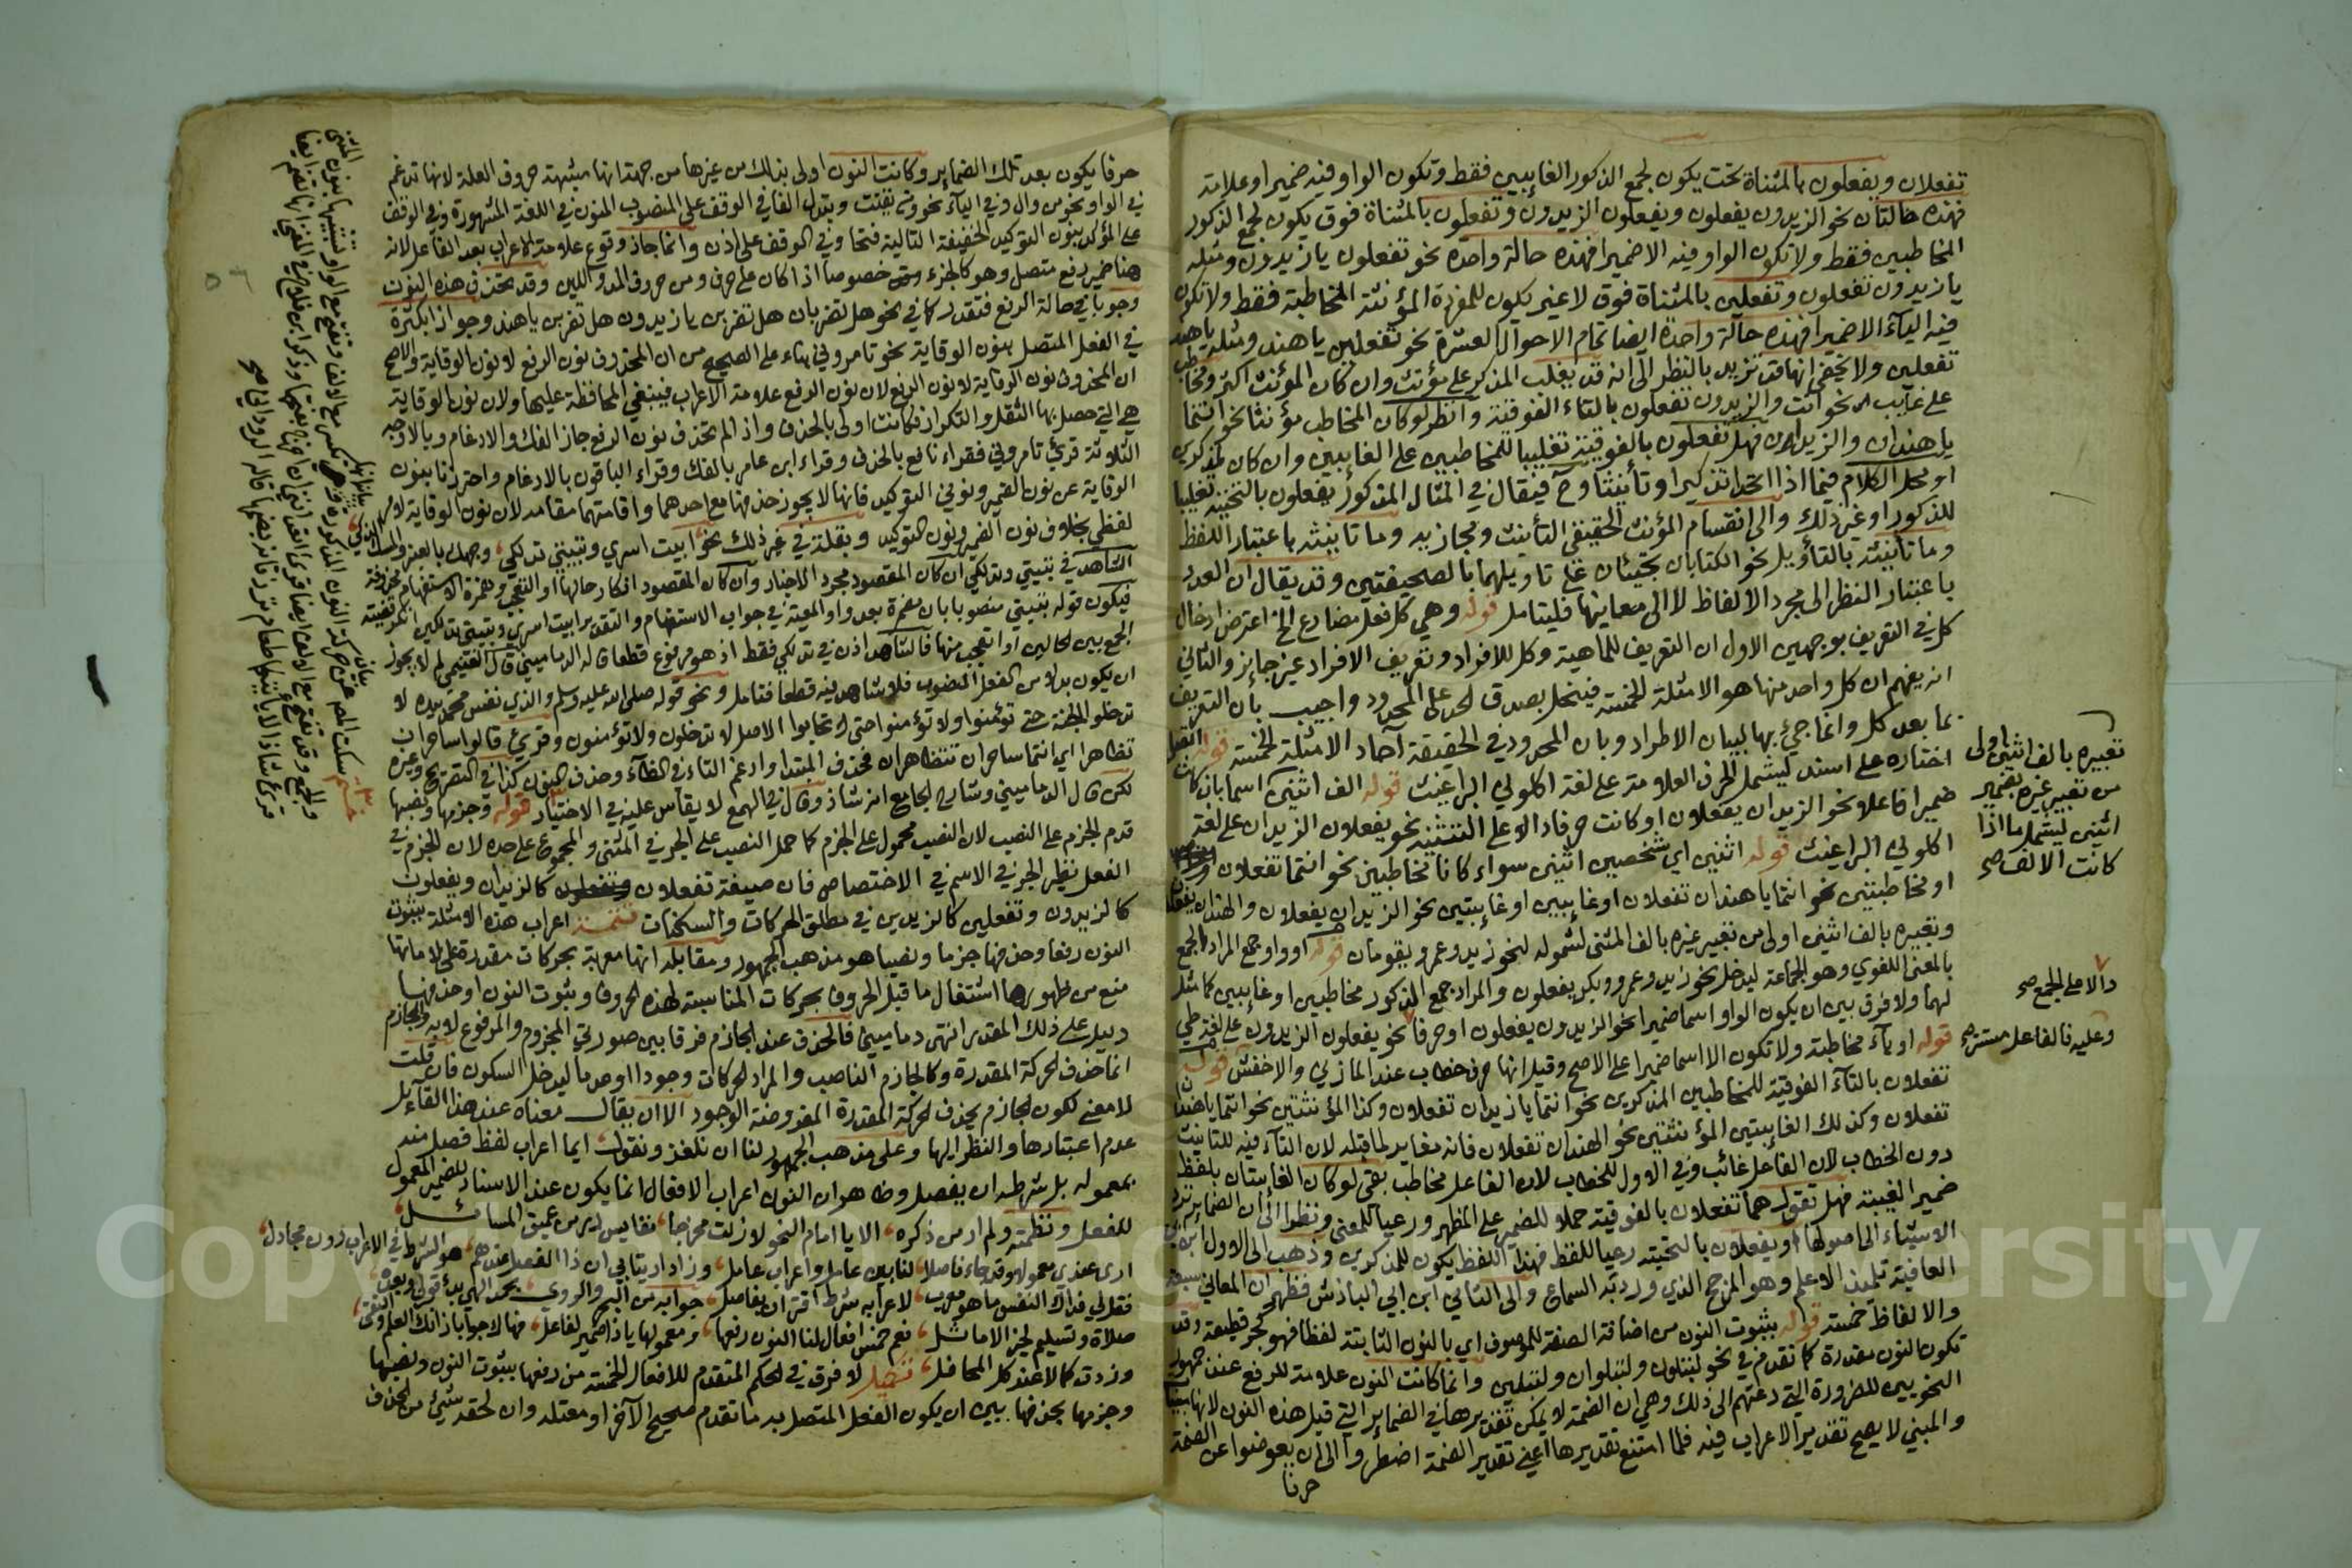 تفعلان ويفعلون بالمثناة تحت يكون لجمع الذكور الغايبين فقط وتكون الواو فيه ضمير او علامة
فهذه حالتان نحو الزيدون يفعلون ويفعلون الزيدون وتفعلون بالمثناة فوق يكون لجمع الذكور
المخاطبين فقط ولا تكون الواو فيه الا ضميرا فهذه حالة واحدة نحو تفعلون يا زيدون ومثله
يا زيدون تفعلون وتفعلين بالمثناة فوق لا غير يكون للمفردة المؤنثة المخاطبة فقط ولا تكون
فيه الياء الا ضميرا فهذه حالة واحدة ايضا تمام الاحوال العشرة نحو تفعلين يا هند ومثله يا هند
تفعلين ولا يخفى انها قد تزيد بالنظر الى انه قد يغلب المذكر على مؤنث وان كان المؤنث اكثر ومخاطب
على غايب نحو انت والزيدون تفعلون بالتاء الفوقية وانظر لو كان المخاطب مؤنثا نحو انتما
يا هندان والزيدان فهل تفعلون بالفوقية تغليبا للمخاطبين على الغايبين وان كان لمذكرين
او محل الكلام فيما اذا اتحدا تذكيرا وتأنيثا وح فيقال في المثال المذكور يفعلون بالتحتية تغليبا
للذكور او غير ذلك والى انقسام المؤنث لحقيقي التأنيث ومجازيه وما تأنيثه باعتبار اللفظ
وما تأنيثه بالتأويل نحو الكتابان تجيئان على تاويلهما بالصحيفتين وقد يقال ان العدد
باعتبار النظر الى مجرد الالفاظ لا الى معاينها فليتامل قوله وهي كل فعل مضارع الخ اعترض ادخال
كل في التعريف بوجهين الاول ان التعريف للماهية وكل للافراد وتعريف الافراد غير جايز والثاني
انه يفهم ان كل واحد منها هو الامثلة الخمسة فيختل بصدق الحد على المحدود واجيب بان التعريف
بما بعد كل وانما جيئ بها لبيان الاطراد وبان المحدود في الحقيقة آحاد الامثلة الخمسة قوله اتصل
اختاره على اسند ليشمل الحرف العلامة على لغة اكلوني البراغيث قوله الف اثنين اسما بان كانت
ضميرا فاعلا نحو الزيدان يفعلان او كانت حرفا دالا على التثنية نحو يفعلان الزيدان على لغة
اكلوني البراغيث قوله اثنين اي شخصين اثنين سواء كانا مخاطبين نحو انتما تفعلان
او مخاطبتين نحو انتما يا هندان تفعلان او غايبين او غايبتين نحو الزيدان يفعلان والهندان تفعلا
وتعبيره بالف اثنين اولى من تعبير غيره بالف المثنى لشموله لنحو زيد وعمرو يقومان قوله او واو جمع المراد الجمع
بالمعنى اللغوي وهو الجماعة ليدخل نحو زيد وعمرو وبكر يفعلون والمراد جمع الذكور مخاطبين او غايبين كما مثل
لهما ولا فرق بين ان يكون الواو اسما ضميرا نحو الزيدون يفعلون او حرفا نحو يفعلون الزيدون على لغة طي
قوله او ياء مخاطبة ولا تكون الا اسما ضميرا على الاصح وقيل انها حرف خطاب عند المازني والاخفش قوله
تفعلان بالتاء الفوقية للمخاطبين المذكرين نحو انتما يا زيدان تفعلان وكذا المؤنثتين نحو انتما يا هندان
تفعلان وكذلك الغايبتين المؤنثتين نحو الهندان تفعلان فانه مغاير لما قبله لان التاء فيه للتانيث
دون الخطاب لان الفاعل غائب وفي الاول للخطاب لان الفاعل مخاطب بقي لو كان الغايبتان بلفظ
ضمير الغيبة فهل تقول هما تفعلان بالفوقية حملا للضمير على المظهر ورعيا للمعنى ونظرا الى ان الضماير ترد
الاشياء الى اصولها او يفعلان بالتحتية رعيا للفظ فهذا اللفظ يكون للمذكرين وذهب الى الاول ابن ابي
العافية تلميذ الاعلم وهو المرجح الذي ورد به السماع والى الثاني ابن ابي الباذش فظهر ان المعاني سبعة
والالفاظ خمسة قوله بثبوت النون من اضافة الصفة للموصوف اي بالنون الثابتة لفظا فهو كجرد قطيفة وقد
تكون النون مقدرة كما تقدم في نحو لتبلون ولتبلوان ولتبلين وانما كانت النون علامة للرفع عند جمهور
النحويين للضرورة التي دعتهم الى ذلك وهي ان الضمة لا يمكن تقديرها في الضماير التي قبل هذه النون لانها مبنية
والمبني لا يصح تقدير الاعراب فيه فلما امتنع تقديرها اعني تقدير الضمة اضطروا الى ان يعوضوا عن الضمة
حرفا
تعبيره بالف اثنين اولى
من تعبير غيره بضمير
اثنين ليشمل ما اذا
كانت الالف صح
دالا على الجمع صح
وعليه فالفاعل مستتر صح
حرفا يكون بعد تلك الضماير وكانت النون اولى بذلك من غيرها من جهة انها مشبهة حروف العلة لانها تدغم
في الواو نحو من وال وفي الياء نحو من يقنت وتبدل الفا في الوقف على المنصوب المنون في اللغة المشهورة وفي الوقف
على المؤكد بنون التوكيد الخفيفة التالية فتحا وفي الوقف على اذن وانما جاز وقوع علامة الاعراب بعد الفاعل لانه
هنا ضمير رفع متصل وهو كالجزء خصوصا اذا كان على حرف ومن حروف المد واللين وقد تحذف هذه النون
وجوبا في حالة الرفع فتقدر كما في نحو هل تضربان هل تضربن يا زيدون هل تضربن يا هند وجوازا بكثرة
في الفعل المتصل بنون الوقاية نحو تامروني بناء على الصحيح من ان المحذوف نون الرفع لا نون الوقاية والاصح
ان المحذوف نون الوقاية لا نون الرفع لان نون الرفع علامة الاعراب فينبغي المحافظة عليها ولان نون الوقاية
هي التي حصل بها الثقل والتكرار فكانت اولى بالحذف واذا لم تحذف نون الرفع جاز الفك والادغام وبالاوجه
الثلاثة قرئ تامروني فقراء نافع بالحذف وقراء ابن عامر بالفك وقراء الباقون بالادغام واحترزنا بنون
الوقاية عن نون الضمير ونوني التوكيد فانها لا يجوز حذفها مع احدهما واقامتهما مقامه لان نون الوقاية
لفظي بخلاف نون الضمير ونون التوكيد وبقلة في غير ذلك نحو ابيت اسري وتبيتي تدلكي وجهك بالعنبر والمسك الذكي
الشاهد في تبيتي وتدلكي ان كان المقصود مجرد الاخبار وان كان المقصود انكار حالها او التعجب وهمزة الاستفهام محذوفة
فيكون قوله تبيتي منصوبا بان مضمرة بعد واو المعية في جواب الاستفهام والتقدير ابيت اسري وتبيتي تدلكين
الجمع بين الحالين او اتعجب منها فالشاهد اذن في تدلكي فقط اذ هو مرفوع قطعا قاله الدماميني قال التقيمي لم لا يجوز
ان يكون بدلا من الفعل المنصوب فلا شاهد فيه قطعا فتامل ونحو قوله صلى الله عليه وسلم والذي نفس محمد بيده لا
تدخلوا الجنة حتى تؤمنوا ولا تؤمنوا حتى تحابوا الاصل لا تدخلون ولا تؤمنون وقرئ قالوا ساحران
تظاهرا اي انتما ساحران تتظاهران فحذف المبتدا وادغم التاء في الظاء وحذف النون كذا في التصريح وغيره
لكن قال الدماميني وشارح الجامع انه شاذ وقال في الهمع لا يقاس عليه في الاختيار قوله وجزمها ونصبها
قدم الجزم على النصب لان النصب محمول على الجزم كما حمل النصب على الجر في المثنى والمجموع على حده لان الجزم في
الفعل نظير الجر في الاسم في الاختصاص فان صيغة تفعلان كالزيدان ويفعلون
كالزيدون وتفعلين كالزيدين في مطلق الحركات والسكنات تتمة اعراب هذه الامثلة بثبوت
النون رفعا وحذفها جزما ونصبا هو مذهب الجمهور ومقابله انها معربة بحركات مقدرة على لاماتها
منع من ظهورها اشتغال ما قبل الحروف بحركات المناسبة لهذه الحروف وثبوت النون او حذفها
دليل على ذلك المقدر انتهى دماميني فالحذف عند الجازم فرقا بين صورتي المجزوم والمرفوع لا به والجازم
انما حذف الحركة المقدرة وكالجازم الناصب والمراد الحركات وجودا او عدما ليدخل السكون فان قلت
لا معنى لكون الجازم يحذف الحركة المقدرة المفروضة الوجود الا ان يقال معناه عند هذا القائل
عدم اعتبارها والنظر اليها وعلى مذهب الجمهور لنا ان نلغز ونقول ايما اعراب لفظ فصل منه
بمعموله بل شرطه ان يفصل وظاهر ان النون اعراب الافعال انما يكون عند الاسناد للضمير المعمول
للفعل ونظمته ولم ار من ذكره الا يا امام النحو لا زلت مخرجا نفايس در من عميق المسائل
ارى عندي معمولا وقد جاء فاصلا لنا بين عامل واعراب عامل وزاد ارتيابي ان ذا الفصل عندهم هو الشرط في الاعراب دون مجادل
فقل لي فداك النفس ما هو معرب لاعرابه شرط اقتران بفاصل جوابه من البحر والروي بحمد الهي بدء قولي وبعده
صلاة وتسليم لخير الاماثل نعم خمس افعال لنا النون رفعها ومعمولها يا ذا ضمير لفاعل فهاك جوابا زانك العلم والتقى
وزدت كمالا عند كل المحافل تكميل لا فرق في الحكم المتقدم للافعال الخمسة من رفعها بثبوت النون ونصبها
وجزمها بحذفها بين ان يكون الفعل المتصل به ما تقدم صحيح الآخر او معتله وان لحقه شيئ من الحذف